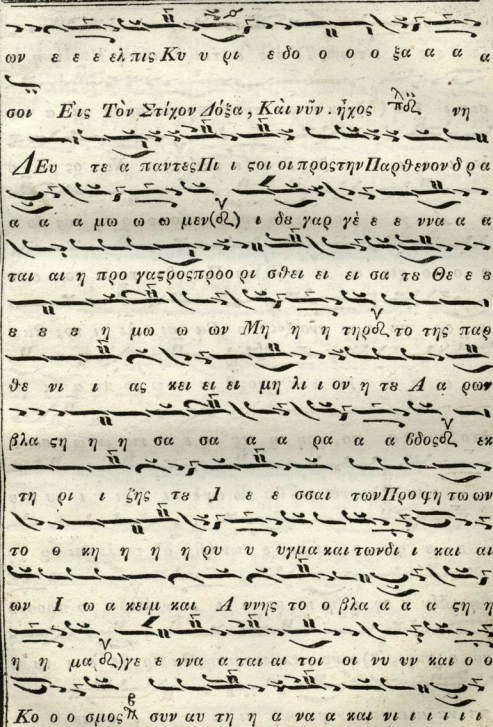 ων ε ε ε ελ πις Κυ υ ρι ε δο ο ο ο ξα α α α
σοι Εἰς Τὸν Στίχον Δόξα, Καὶ νῦν. ἦχος νη
ΔΕυ τε α παντες Πι ι ϛοι οι προς την Παρθενον δ ρα
α α α μω ω ω μεν ι δȣ γαρ γὲ ε ε ννα α α
ται αι η προ γαϛρος προο ρι σθει ει ει σα τȣ Θε ε ε
ε ε ε η μω ω ων Μη η η τηρ το της παρ
θε νι ι ας κει ει ει μη λι ι ον η τȣ Α α ρων
βλα ϛη η η σα σα α α ρα α α βδος εκ
τη ρι ι ζης τȣ Ι ε ε σσαι των Προ φη τω ων
το ο κη η η η ρυ υ υγμα και των δι ι και αι
ων Ι ω α κειμ και Α ννης το ο βλα α α α ϛη η
η η μα γε ε ννα α ται αι τοι οι νυ υν και ο ο
Κο ο ο σμος συν αυ τη η α να α και νι ι ι ι ι